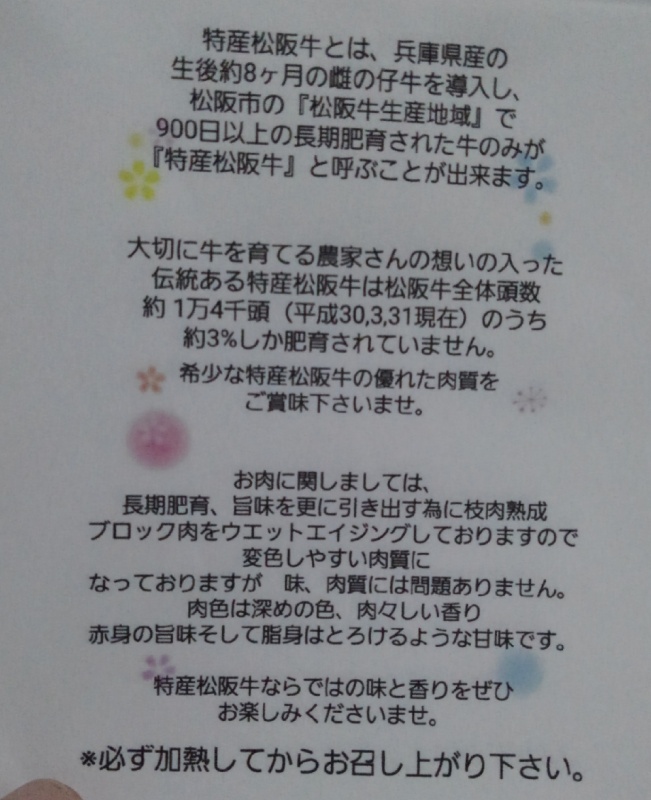 特産松阪牛とは、兵庫県産の
生後約8ヶ月の雌の仔牛を導入し、
松阪市の『松阪牛生産地域』で
900日以上の長期肥育された牛のみが
『特産松阪牛』と呼ぶことが出来ます。
大切に牛を育てる農家さんの想いの入った
伝統ある特産松阪牛は松阪牛全体頭数
約 1万4千頭（平成30,3,31現在）のうち
約3%しか肥育されていません。
希少な特産松阪牛の優れた肉質を
ご賞味下さいませ。
お肉に関しましては、
長期肥育、旨味を更に引き出す為に枝肉熟成
ブロック肉をウエットエイジングしておりますので
変色しやすい肉質に
なっておりますが　味、肉質には問題ありません。
肉色は深めの色、肉々しい香り
赤身の旨味そして脂身はとろけるような甘味です。
特産松阪牛ならではの味と香りをぜひ
お楽しみくださいませ。
※必ず加熱してからお召し上がり下さい。